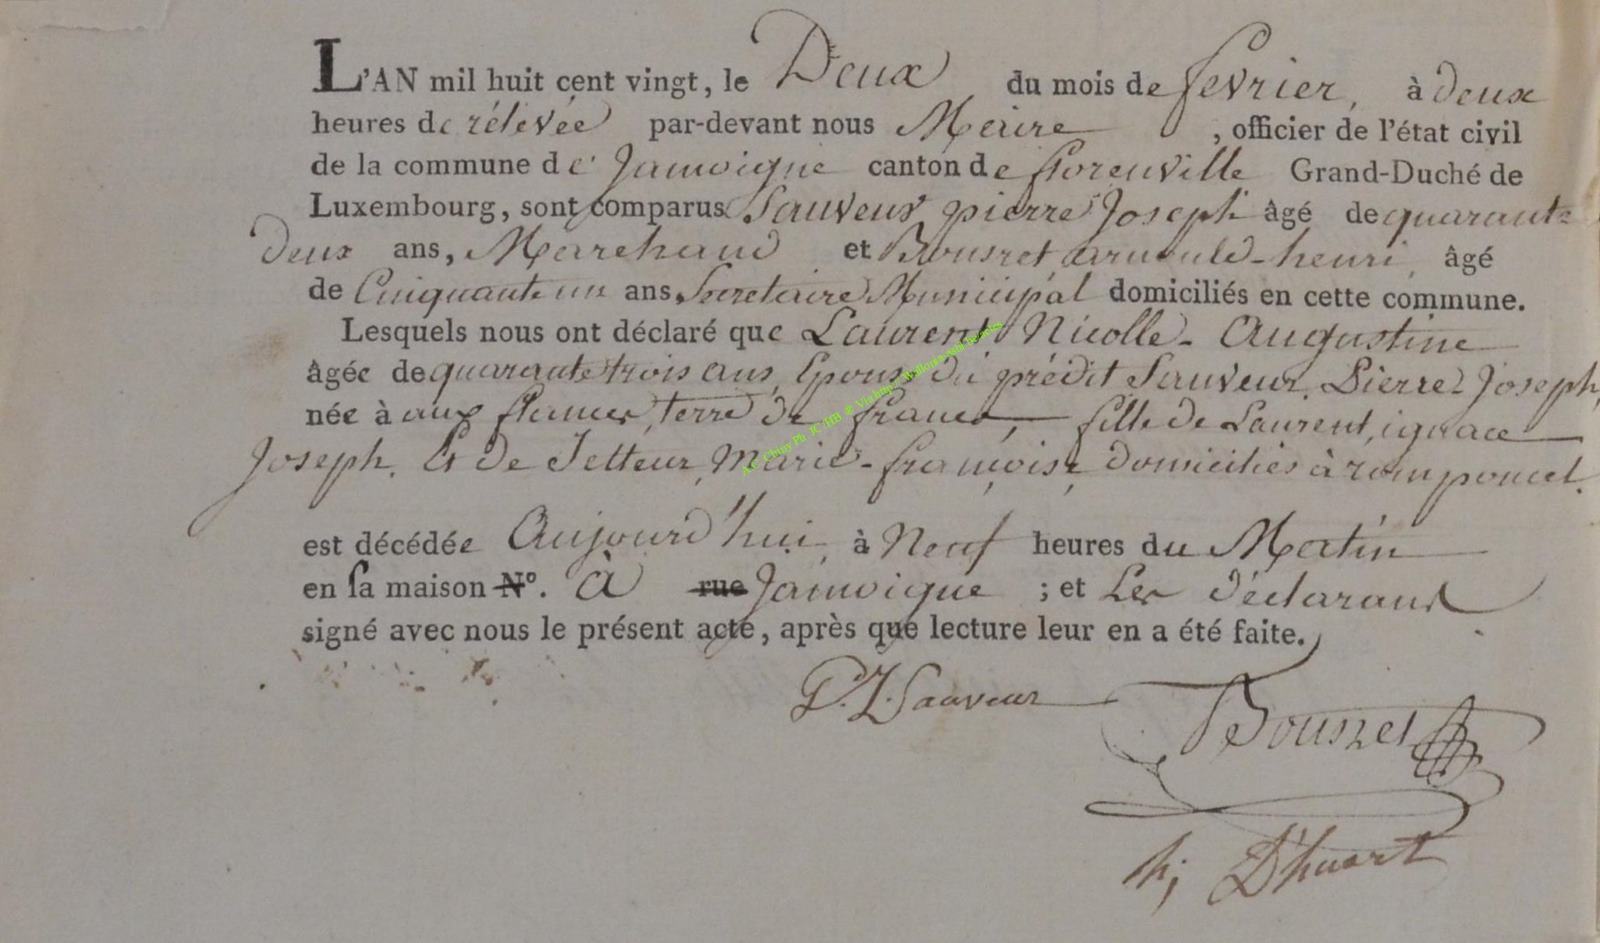 L'AN mil huit cent vingt, le Deux du mois de fevrier, à deux
heures de rélevée par-devant nous Maire, officier de l'état civil
de la commune de Jamoigne canton de florenville Grand-Duché de
Luxembourg, sont comparus Sauveur pierre Joseph âgé de quarante
deux ans, Marchand et Bousret arnould-henri, âgé
de Cinquante un ans, Secretaire Municipal domiciliés en cette commune.
Lesquels nous ont déclaré que Laurent Nicolle-Augustine
âgée de quarante trois ans, Epouse du prédit Sauveur, Pierre Joseph,
née à aux terre de france, fille de Laurent, ignace
Joseph, Et de Marie-françoise, domiciliés à romponcel.
est décédée Aujourd'hui, à Neuf heures du Matin
en sa maison N°. à rue Jamoigne ; et Les déclarans
signé avec nous le présent acte, après que lecture leur en a été faite.
P. J. Sauveur
Bousret
h; D'huart